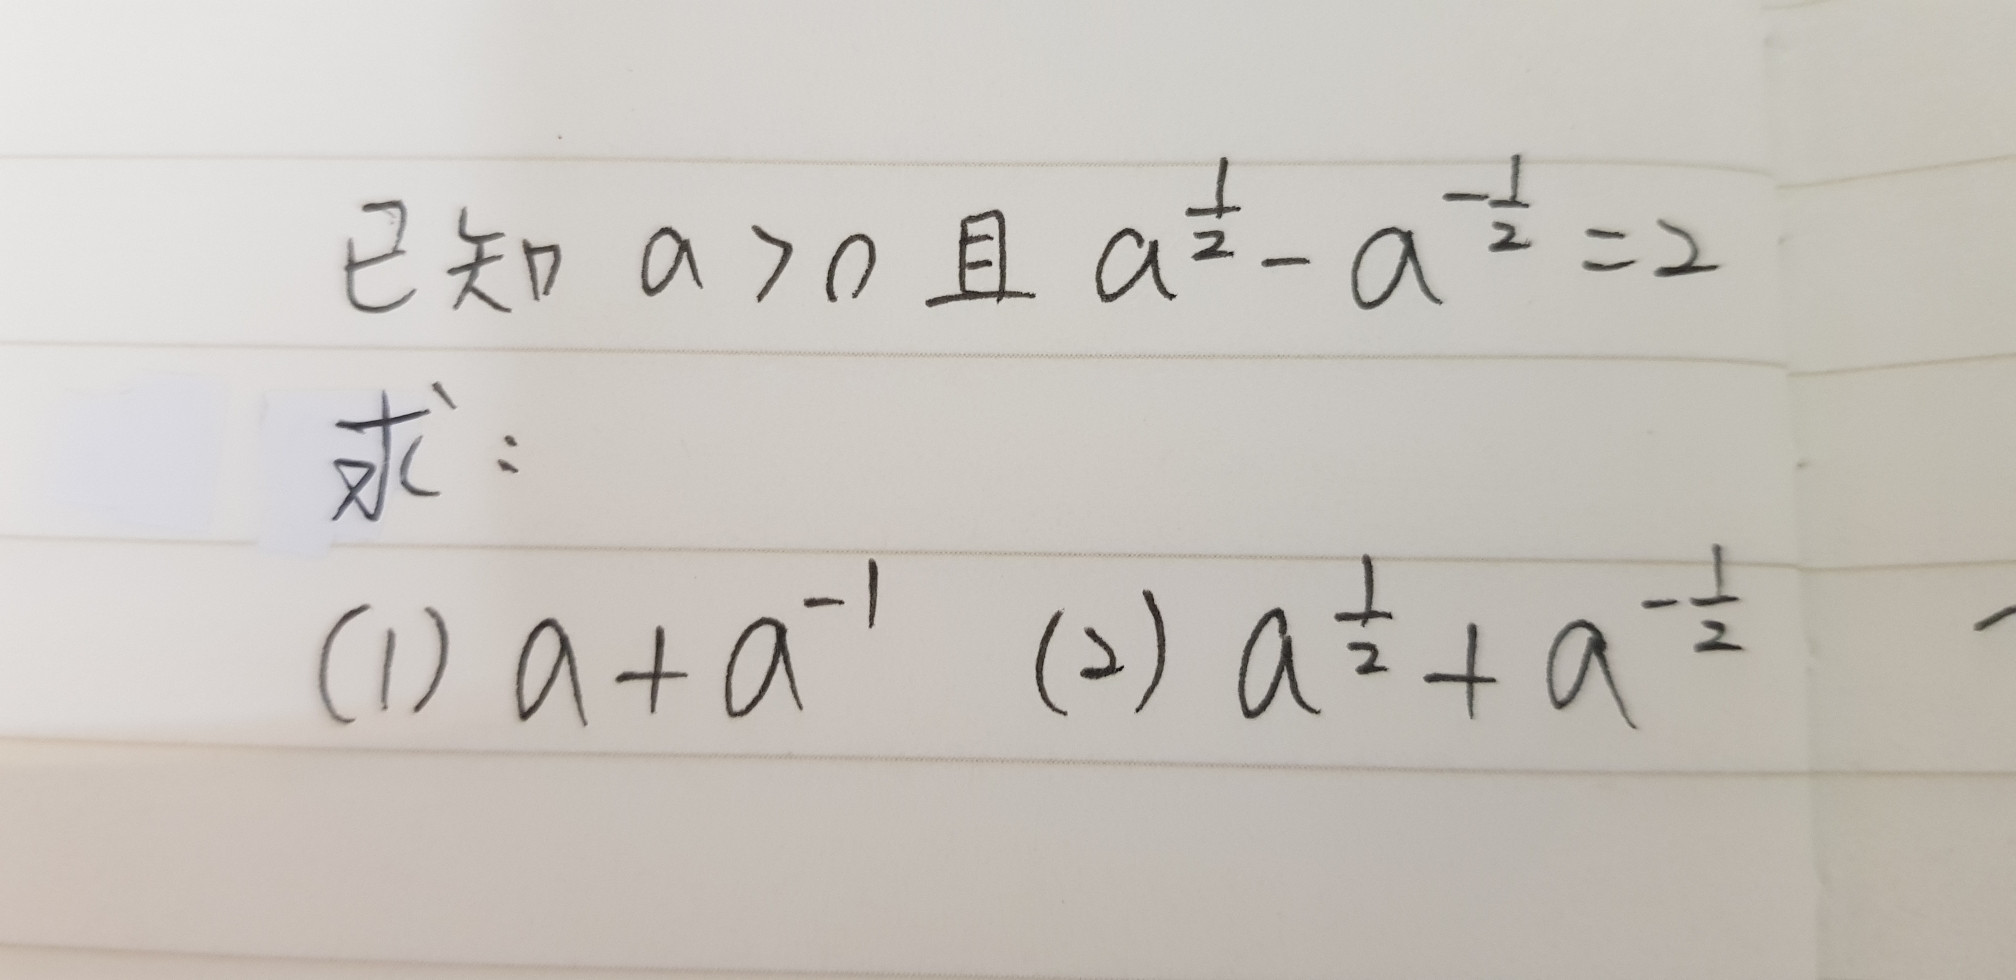 已知 a>0 且 a^{\frac{1}{2}} - a^{-\frac{1}{2}} = 2
求:
(1) a + a^{-1} (2) a^{\frac{1}{2}} + a^{-\frac{1}{2}}